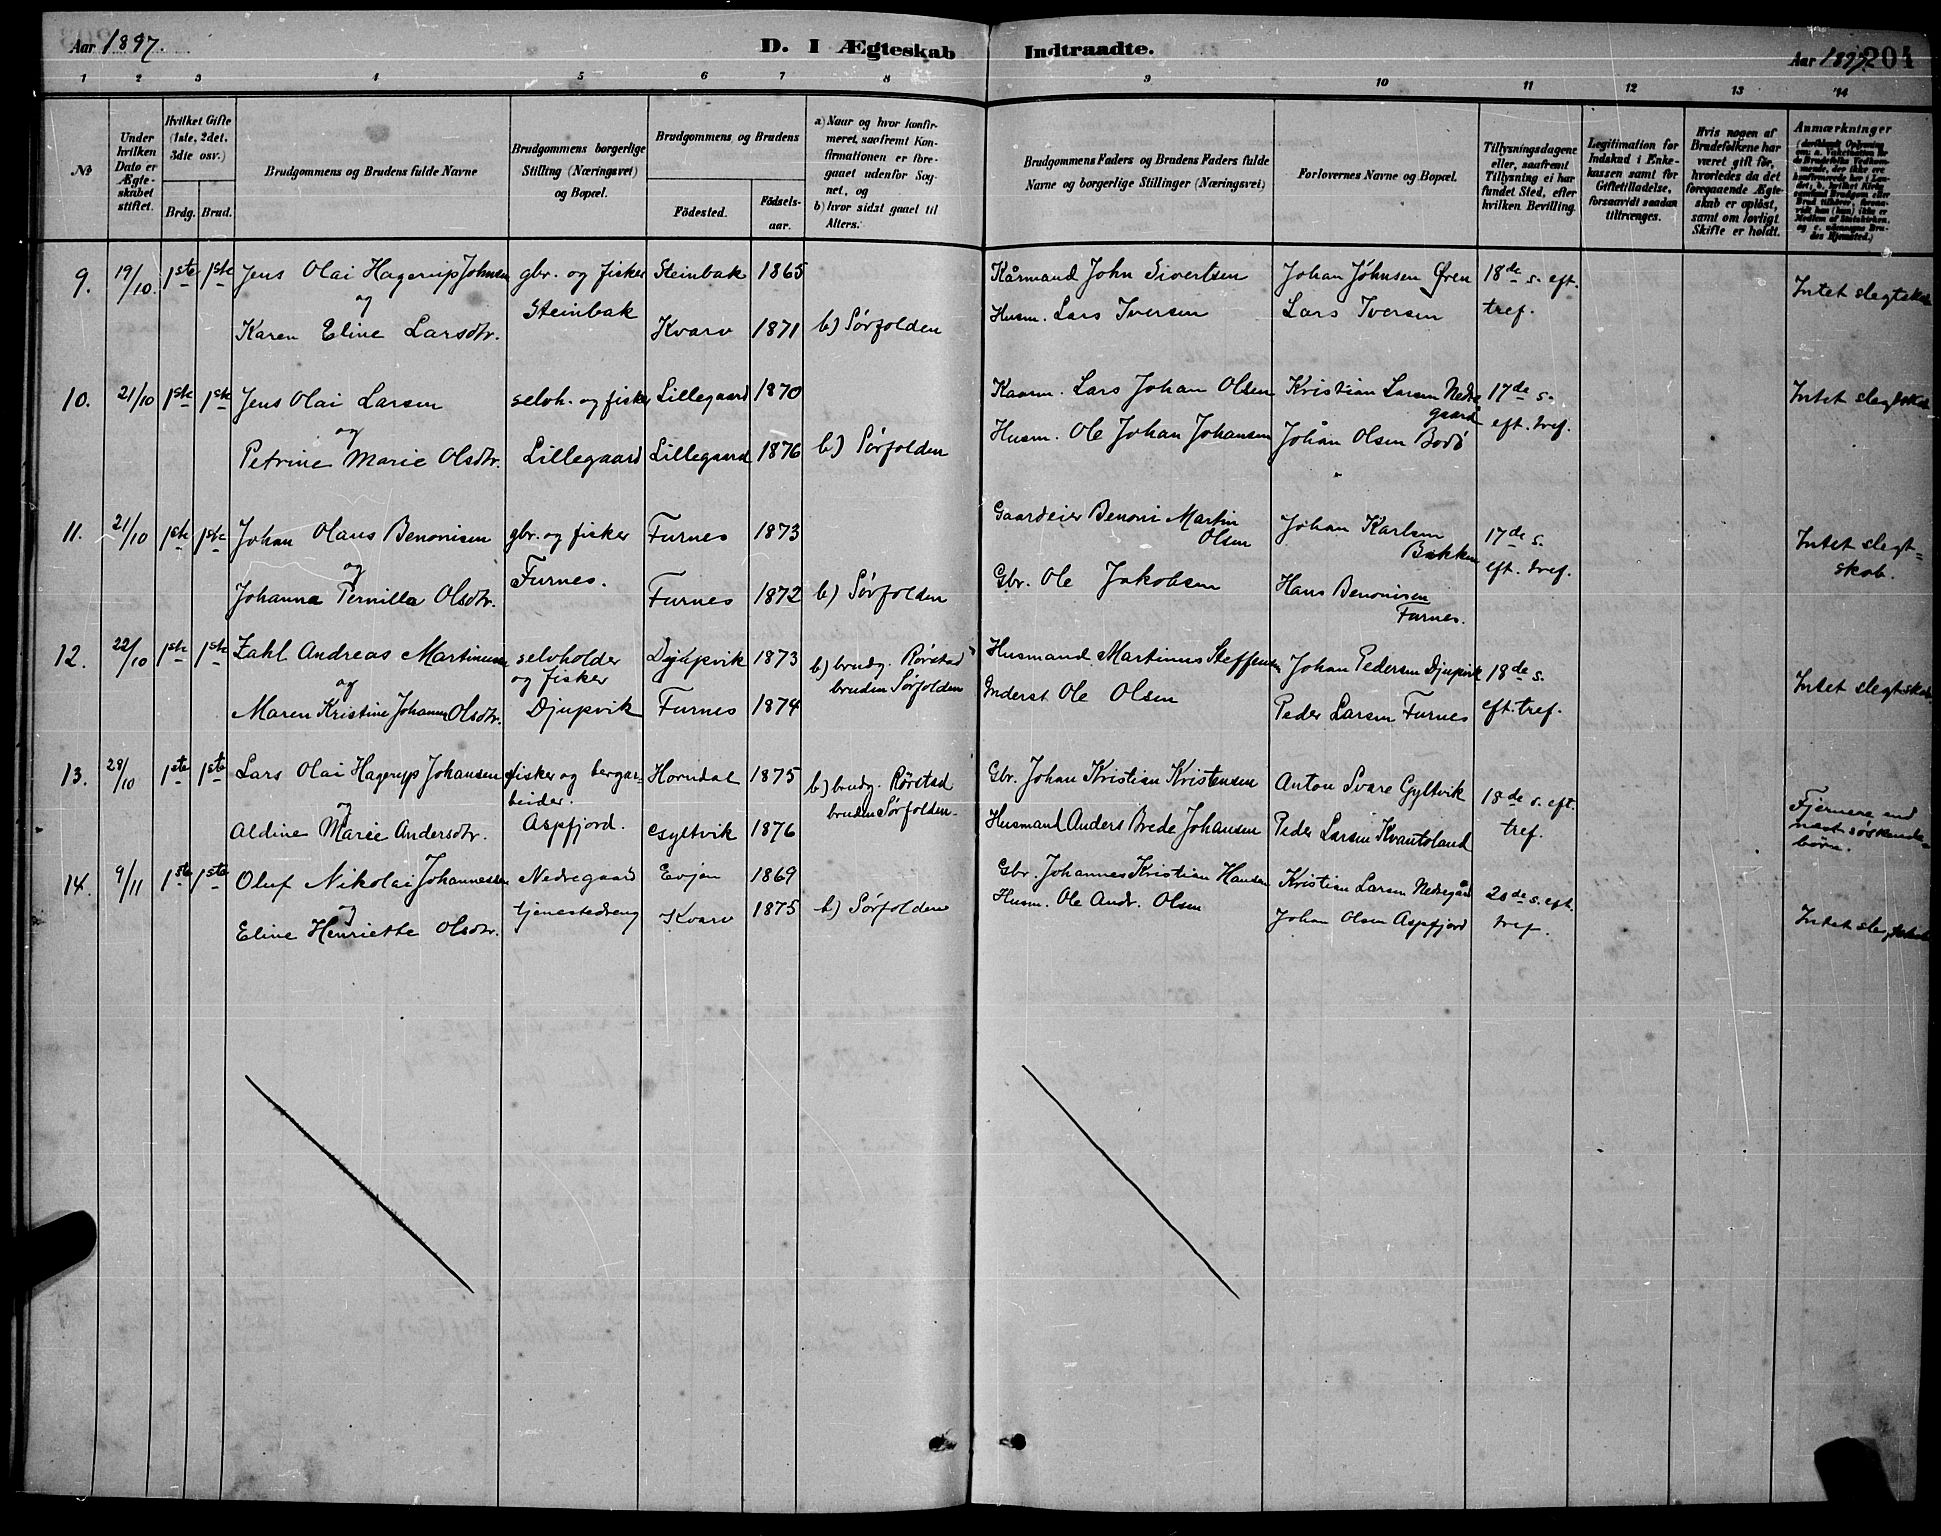 Aar 1897.
D. I Ægteskab Indtraadte.
Aar 1897.
204
1 2 3 4 5 6 7 8 9 10 11 12 13 14
№
Under hvilken Dato er Ægteskabet stiftet.
Hvilket Gifte (1ste, 2det, 3die osv.)
Brdg. Brud.
Brudgommens og Brudens fulde Navne
Brudgommens borgerlige Stilling (Næringsvei) og Bopæl.
Brudgommens og Brudens
Födested.
Födsels-aar.
a) Naar og hvor konfirmeret, saafremt Konfirmationen er foregaaet udenfor Sognet, og
b) hvor sidst gaaet til Alters.
Brudgommens Faders og Brudens Faders fulde Navne og borgerlige Stillinger (Næringsvei)
Forlovernes Navne og Bopæl.
Tillysningsdagene eller, saafremt Tillysning ei har fundet Sted, efter hvilken Bevilling.
Legitimation for Indskud i Enkekassen samt for Giftetilladelse, forsaavidt saadan tiltrænges.
Hvis nogen af Brudefolkene har været gift för, hvorledes da det foregaaende Ægteskab er oplöst, samt om lovligt Skifte er holdt.
Anmærkninger
9. 19/10 1ste 1ste Jens Olai Hagerup Johnsen gbr. og fisker Steinbak 1865 Kårmand John Sivertsen Johan Johnsen Øren 18de s. eft. Intet slegtskab
og Steinbak tref.
Karen Eline Larsdtr. Kvarv 1871 b) Sørfolden Husm. Lars Iversen Lars Iversen
10. 21/10 1ste 1ste Jens Olai Larsen selvh. og fisker Lillegaard 1870 Kaarm. Lars Johan Olsen Kristian Larsen Nedre 17de s. Intet slegtskab
og gaard eft. tref.
Petrine Marie Olsdtr. Lillegaard Lillegaard 1876 b) Sørfolden Husm. Ole Johan Johansen Johan Olsen Bodø
11. 21/10 1ste 1ste Johan Olaus Benonisen gbr. og fisker Furnes 1873 Gaardeier Benoni Martin Olsen Johan Karlsen Bakken 17de s. eft. tref. Intet slegt-
og Furnes. skab.
Johanna Pernilla Olsdtr. Furnes 1872 b) Sørfolden Gbr. Ole Jakobsen Hans Benonisen
Furnes.
12. 22/10 1ste 1ste Zahl Andreas Martinusen selvholder Djupvik 1873 b) brudg. Rørstad Husmand Martinus Steffensen Johan Pedersen Djupvik 18de s. Intet slegtskab
og og fisker bruden Sørfolden
Maren Kristine Johanna Olsdtr. Djupvik Furnes 1874 Inderst Ole Olsen Peder Larsen Furnes eft. tref.
13. 28/10 1ste 1ste Lars Olai Hagerup Johansen fisker og bergar- Horndal 1875 b) brudg. Rørstad Gbr. Johan Kristian Kristensen Anton Svare Gyltvik 18de s. eft. Fjernere end
og beider. bruden Sørfolden. tref. næstsøskende-
Aldine Marie Andersdtr. Aspfjord. Gyltvik 1876 Husmand Anders Brede Johansen Peder Larsen Kvantoland børn.
14. 9/11 1ste 1ste Oluf Nikolai Johannessen Nedregaard Evjen 1869 Gbr. Johannes Kristian Hansen Kristian Larsen Nedregård 20de s. eft.
og tjenestedreng Kvarv 1875 b) Sørfolden Husm. Ole Andr. Olsen Johan Olsen Aspfjord tref. Intet slegtskab
Eline Henriette Olsdtr.